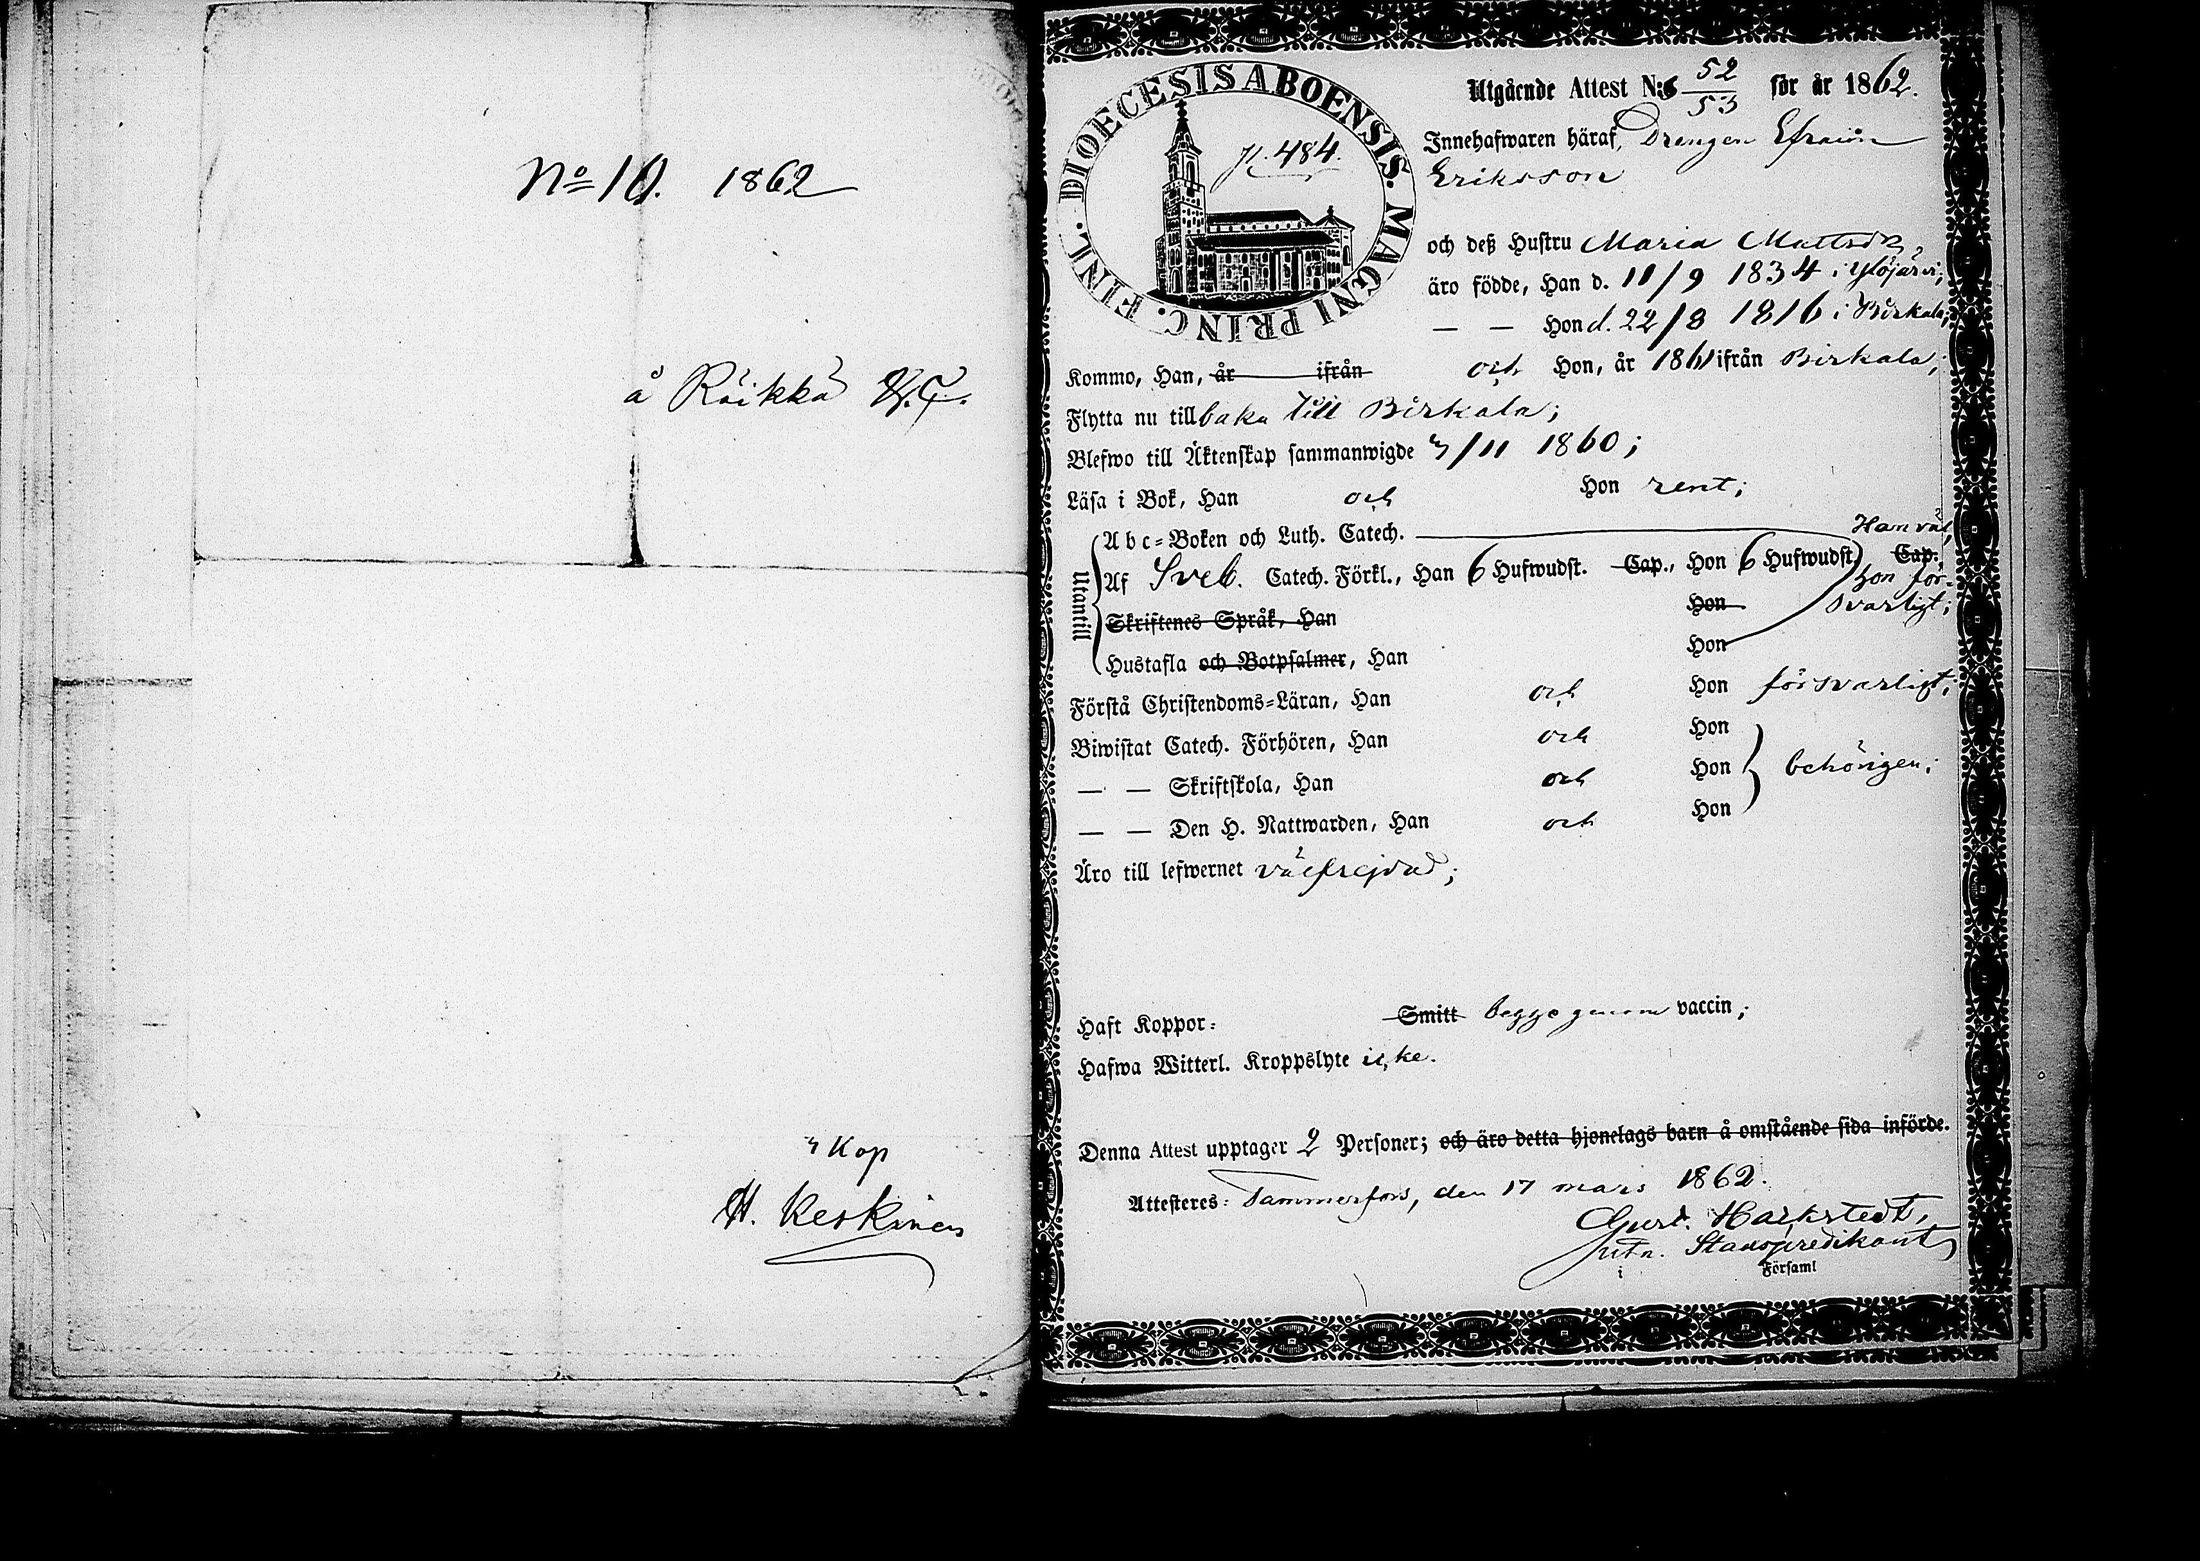 No 10. 1862
å Räikkä
4 Kop
H. Keskinen
DIOECESIS ABOENSIS. MAGNI PRINC. FINL.
p. 484.
Utgående Attest N:o 52/53 för år 1862.
Innehafwaren häraf, Drengen Efraim
Eriksson
och deß Hustru Maria Mattsdr,
äro födde, Han d. 11/9 1834 i Ylöjärvi;
— — Hon d. 22/8 1816 i Birkala;
Kommo, Han, år ifrån och Hon, år 1861 ifrån Birkala;
Flytta nu tillbaka till Birkala;
Blefwo till Äktenskap sammanwigde 4/11 1860;
Läsa i Bok, Han och Hon rent;
Utantill
Abc-Boken och Luth. Catech. Han väl,
Af Sveb. Catech. Förkl., Han 6 Hufwudst. Cap., Hon 6 Hufwudst. Cap.,
hon för-
Skriftenes Språk, Han Hon svarligt;
Hustafla och Botpsalmer, Han Hon
Förstå Christendoms-Läran, Han och Hon försvarligt;
Biwistat Catech. Förhören, Han och Hon
— — Skriftskola, Han och Hon behörigen;
— — Den H. Nattwarden, Han och Hon
Äro till lefwernet välfrejdad;
Haft Koppor: Smitt begge genom vaccin;
Hafwa Witterl. Kroppslyte icke.
Denna Attest upptager 2 Personer; och äro detta hjonelags barn å omstående sida införde.
Attesteres: Tammerfors, den 17 mars 1862.
Stadspredikant
i Församl